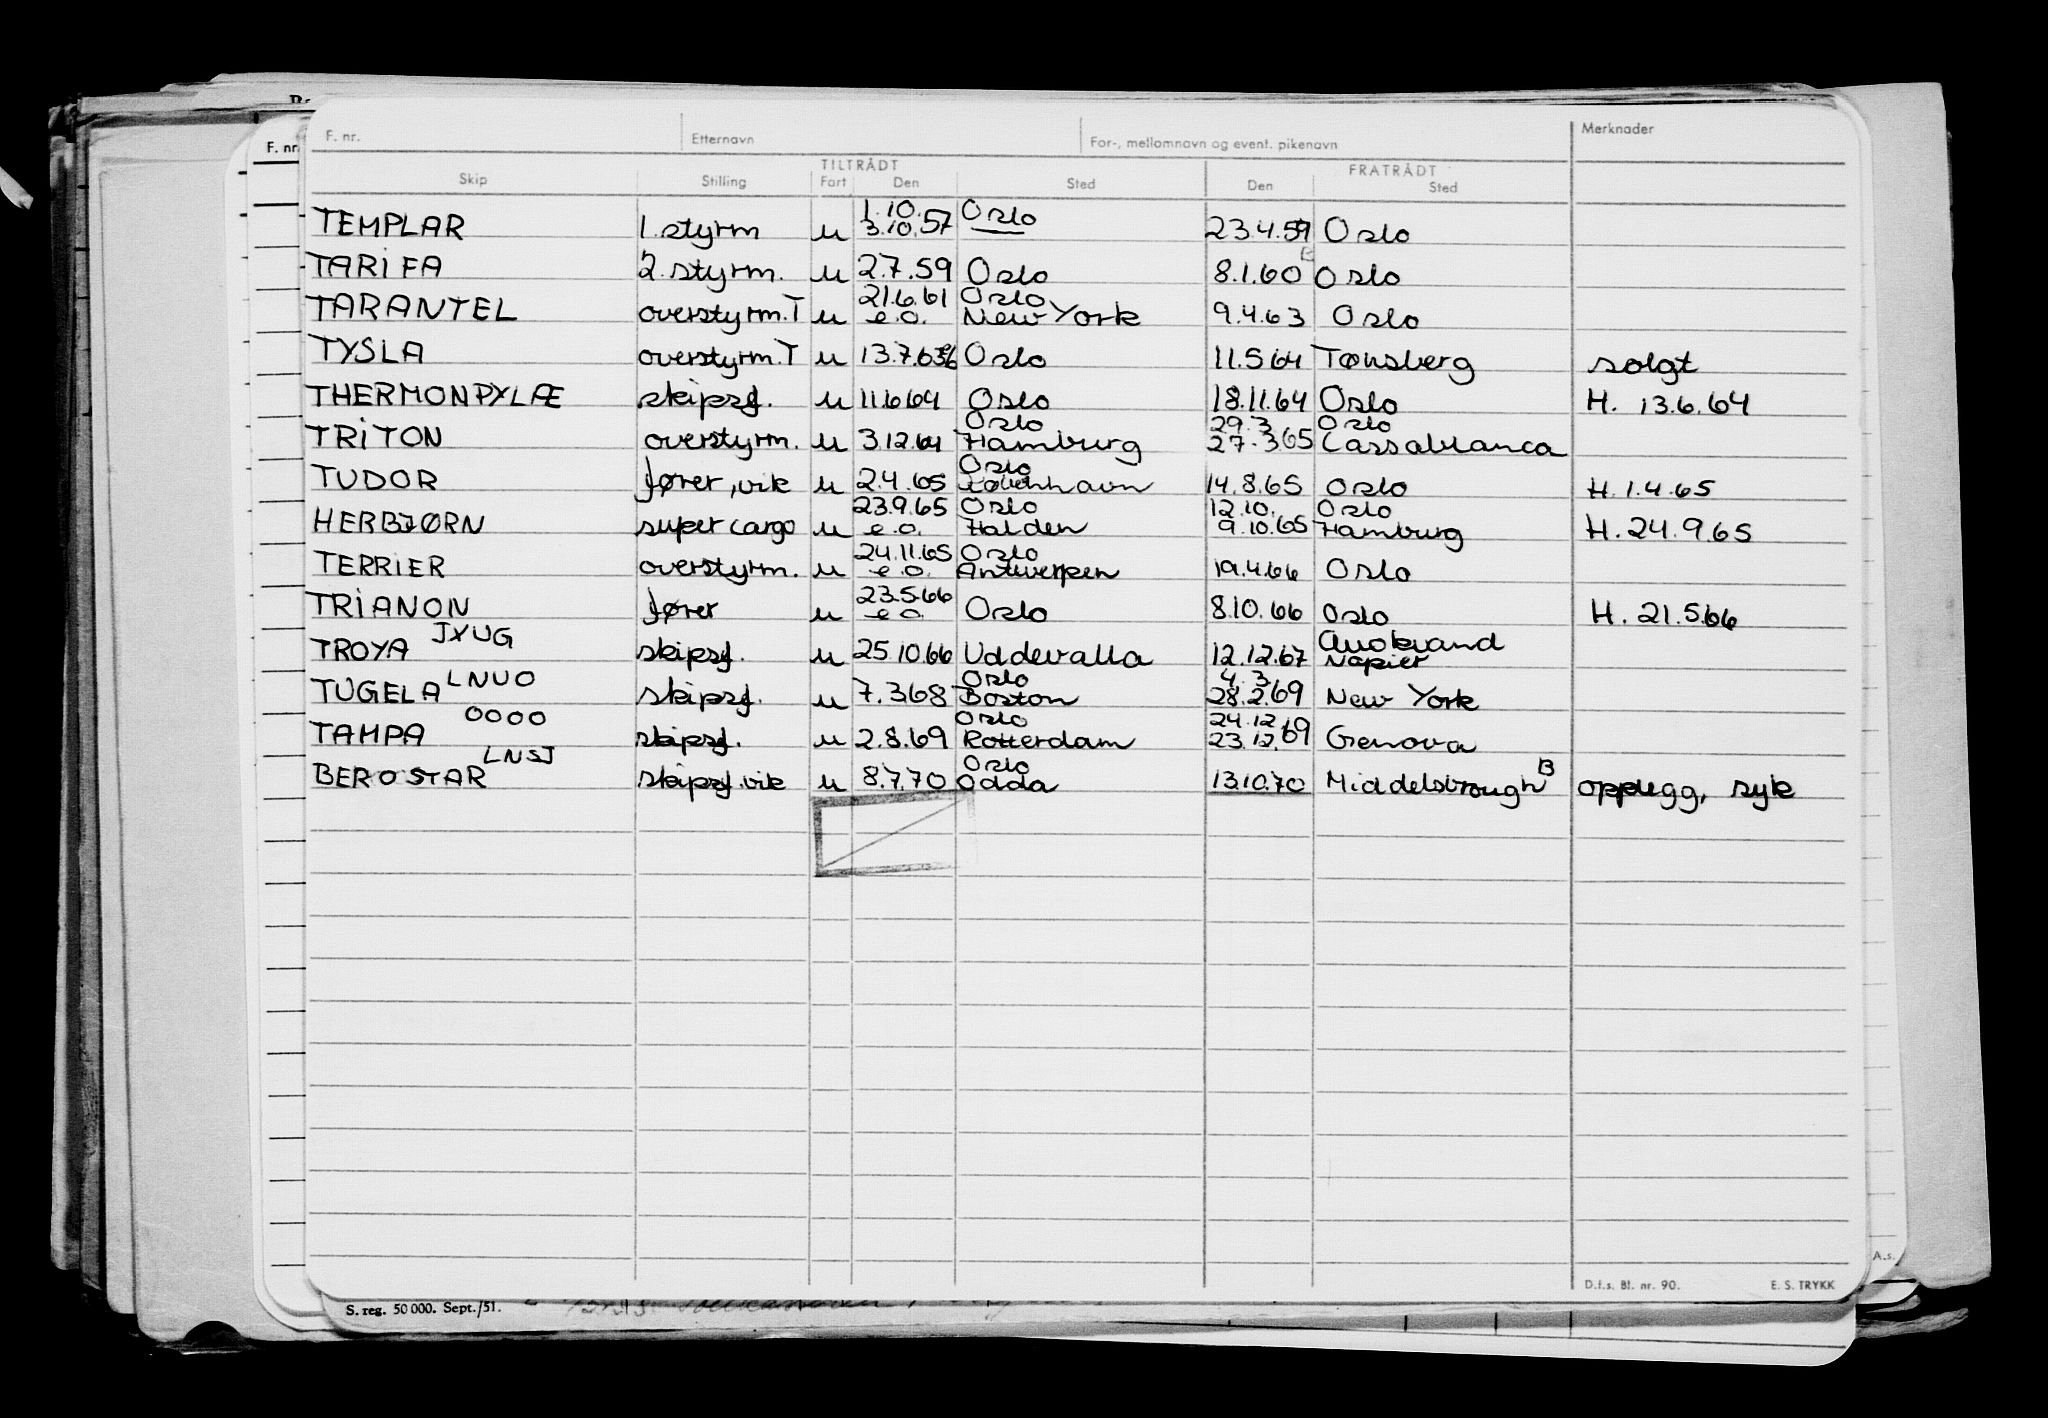 F. nr. Etternavn For-, mellomnavn og event. pikenavn Merknader
F. nr.
TILTRÅDT FRATRÅDT
Skip Stilling Fart Den Sted Den Sted
1.10. Oslo
TEMPLAR 1. styrm u 3.10.57 23.4.59 Oslo
TARIFA 2. styrm. u 2.7.59 Oslo 8.1.60 Oslo
21.6.61 Oslo
TARANTEL overstyrm. T u e.o. New York 9.4.63 Oslo
TYSLA overstyrm. T u 13.7.63 Oslo 11.5.64 Tønsberg solgt
THERMONPYLÆ skipsf. u 11.6.64 Oslo 18.11.64 Oslo H. 13.6.64
Oslo 29.3 Oslo
TRITON overstyrm. u 3.12.64 Hamburg 27.3.65 Cassablanca
Oslo
TUDOR fører, vik u 2.4.65 København 14.8.65 Oslo H. 1.4.65
23.9.65 Oslo 12.10. Oslo
HERBJØRN super cargo u e.o. Halden 9.10.65 Hamburg H. 24.9.65
24.11.65 Oslo
TERRIER overstyrm. u e.o. Antwerpen 19.4.66 Oslo
23.5.66
TRIANON fører u e.o. Oslo 8.10.66 Oslo H. 21.5.66
JXUG
TROYA skipsf. u 25.10.66 Uddevalla 12.12.67 Napier
LNUO Oslo 4.3
TUGELA skipsf. u 7.3.68 Boston 28.2.69 New York
OOOO Oslo 24.12
TAMPA skipsf. u 2.8.69 Rotterdam 23.12.69 Genova
LNSJ Oslo B
BEROSTAR skipsf. vik u 8.7.70 Odda 13.10.70 Middelsbrough opplegg, syk
A.s.
D.f.s. Bl. nr. 90. E. S. TRYKK
S. reg. 50 000. Sept./51.